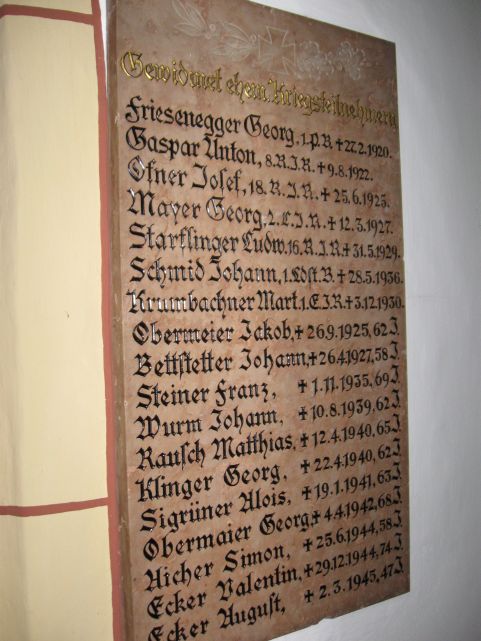 Gewidmet ehem. Kriegsteilnehmern
Friesenegger Georg, 1.P.B. ✝ 27.2.1920.
Gaspar Anton, 8.R.I.R. ✝ 9.8.1922.
Ofner Josef, 18.R.I.R. ✝ 25.6.1925.
Mayer Georg, 2.L.I.R. ✝ 12.3.1927.
Starflinger Ludw. 16.R.I.R. ✝ 31.5.1929.
Schmid Johann, 1.Ldst.B. ✝ 28.5.1936.
Krumbachner Mart. 1.E.I.R. ✝ 3.12.1930.
Obermeier Jakob, ✝ 26.9.1925, 62 J.
Bettstetter Johann, ✝ 26.4.1927, 58 J.
Steiner Franz, ✝ 1.11.1935, 69 J.
Wurm Johann, ✝ 10.8.1939, 62 J.
Rausch Matthias, ✝ 12.4.1940, 65 J.
Klinger Georg, ✝ 22.4.1940, 62 J.
Sigrüner Alois, ✝ 19.1.1941, 63 J.
Obermaier Georg, ✝ 4.4.1942, 68 J.
Aicher Simon, ✝ 25.6.1944, 58 J.
Ecker Valentin, ✝ 29.12.1944, 74 J.
Ecker August, ✝ 2.3.1945, 47 J.